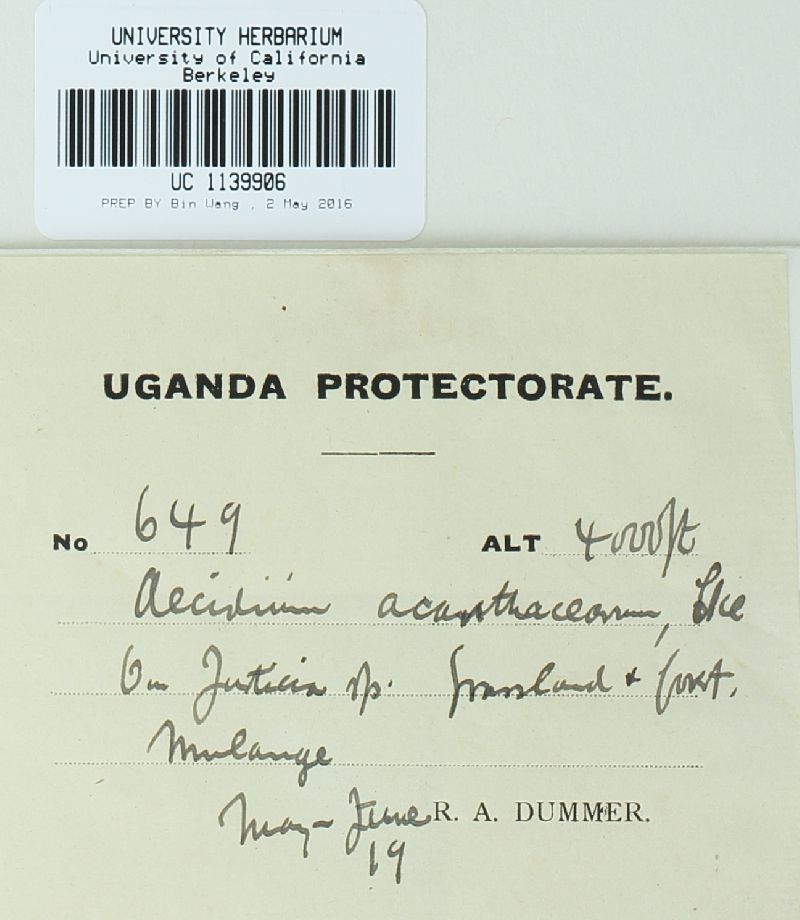 UNIVERSITY HERBARIUM
University of California
Berkeley
UC 1139906
PREP BY Bin Wang , 2 May 2016
UGANDA PROTECTORATE.
No 649 ALT 4000ft
Aecidium acanthacearum,
On Justicia sp. Grassland & forest.
Mulange
May - June R. A. DUMMER.
19